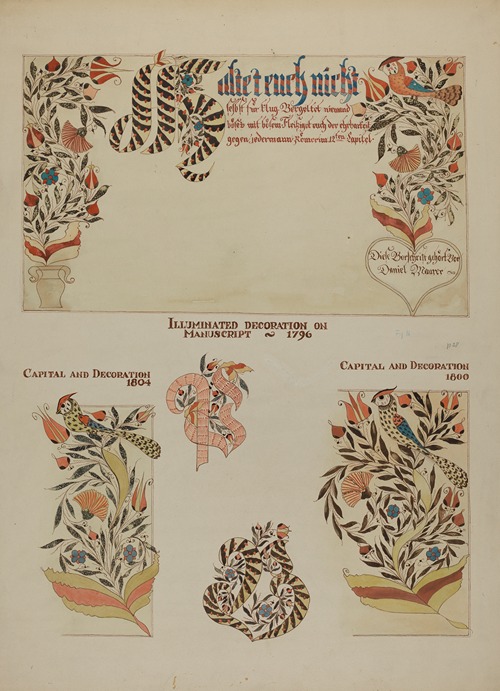 Haltet euch nicht
selbst für klug Vergeltet niemand
böses mit bösem Fleißiget euch der ehrbarkeit
gegen jedermann Römer im 12ten Capitel
Diese Vorschrift gehört Vor
Daniel Maurer ~
ILLUMINATED DECORATION ON
MANUSCRIPT ~ 1796
CAPITAL AND DECORATION
1804
CAPITAL AND DECORATION
1800